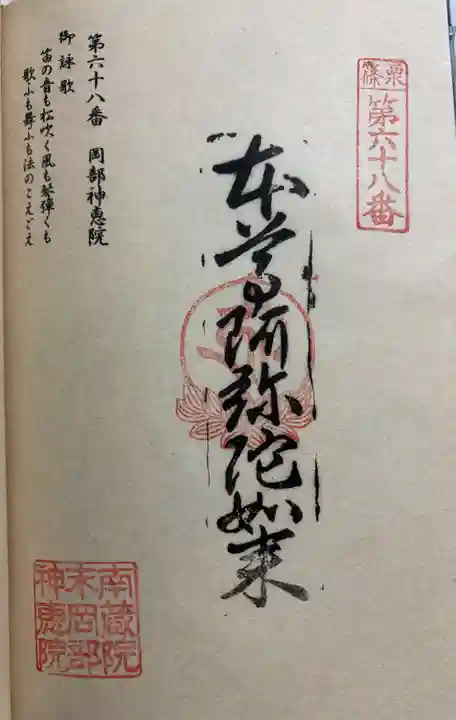 篠栗
第六十八番
本尊阿弥陀如来
第六十八番　岡部神恵院
御詠歌
笛の音も松吹く風も琴弾くも
歌ふも舞ふも法のこえごえ
南蔵院
末岡部
神恵院